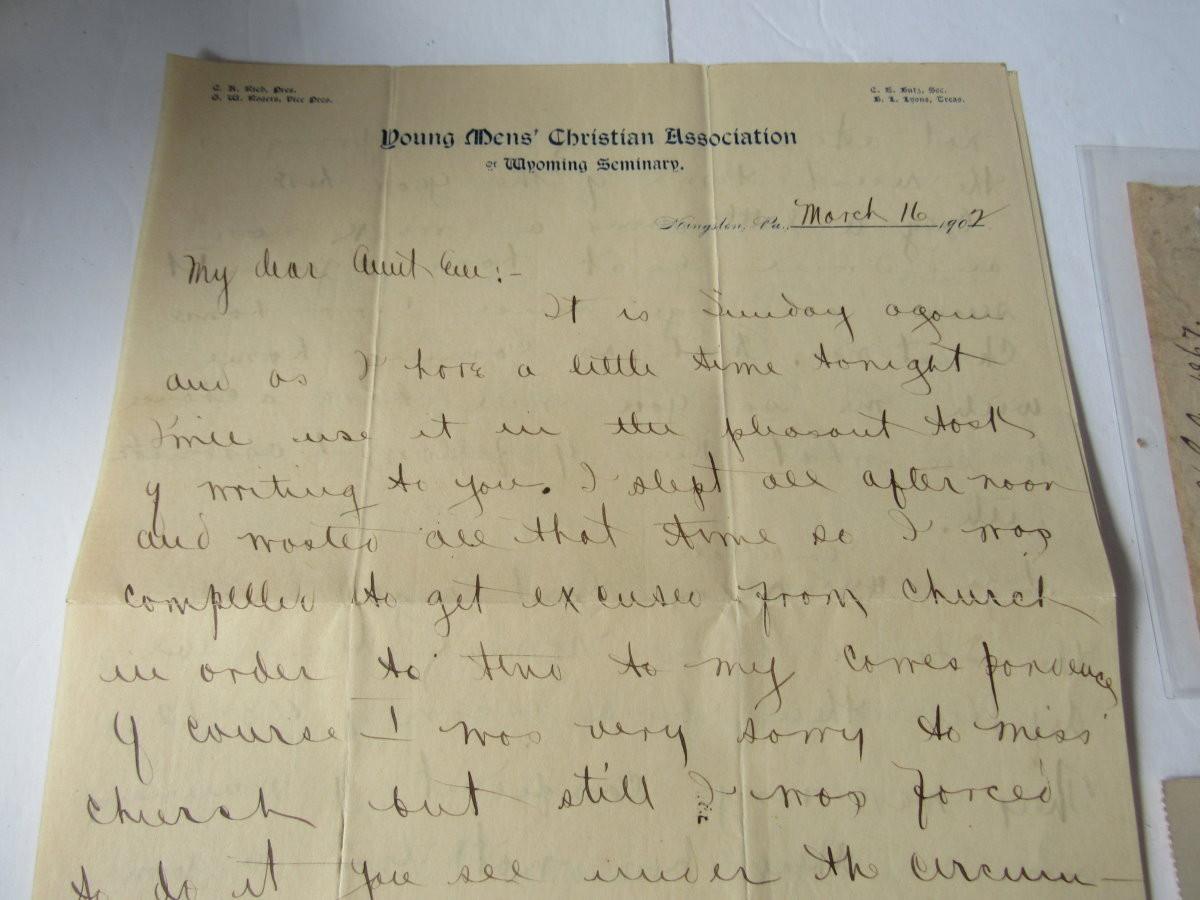 C. R. Rich, Pres.
G. W. Rogers, Vice Pres.
C. E. Butz, Sec.
B. L. Lyons, Treas.
Young Mens' Christian Association
OF Wyoming Seminary.
Kingston, Pa., March 16 1902
My dear Aunt Em:-
It is Sunday again
and as I have a little time tonight
I will use it in the pleasant task
of writing to you. I slept all afternoon
and wasted all that time so I was
compelled to get excused from church
in order to tend to my correspondence
Of course I was very sorry to miss
church but still I was forced
to do it you see under the circum-
1867.